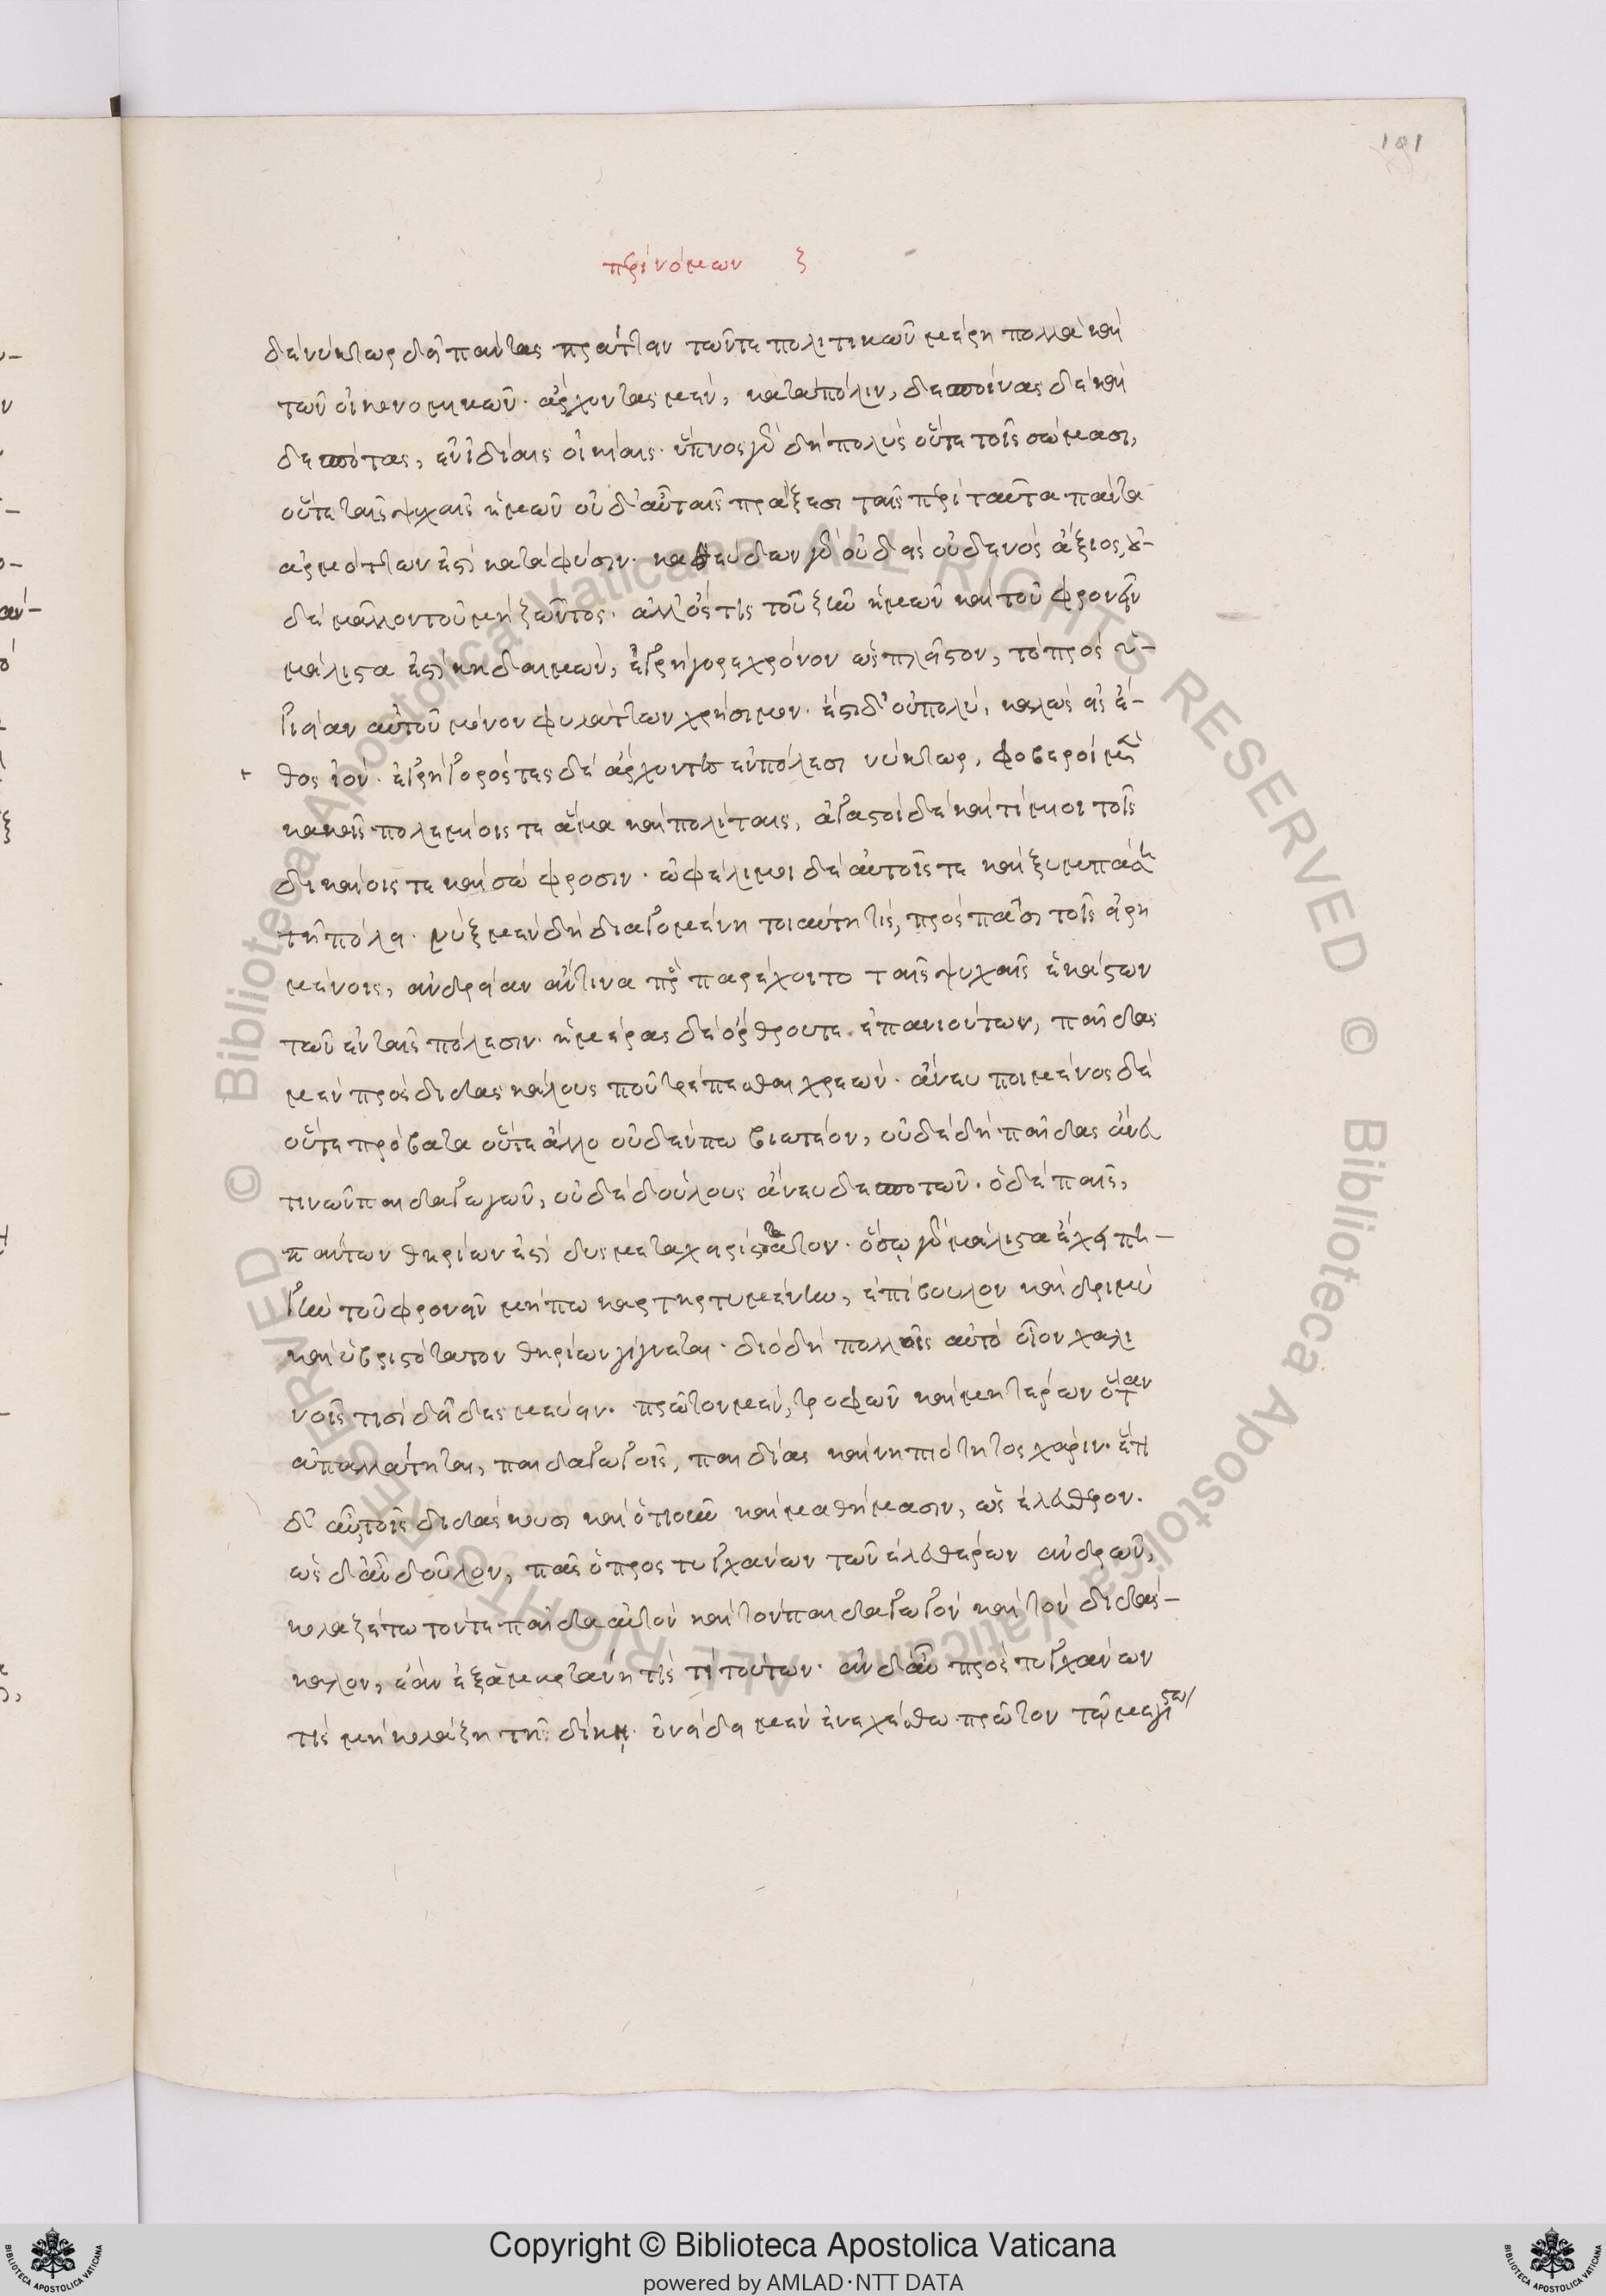 101
περὶ νόμων ζ
δὲ νύκτωρ δεῖ πάντας πράττειν τῶν τε πολιτικῶν μέρη πολλὰ καὶ
τῶν οἰκονομικῶν· ἄρχοντας μὲν, κατὰ πόλιν, δεσποίνας δὲ καὶ
δεσπότας, ἐν ἰδίαις οἰκίαις· ὕπνος γὰρ δὴ πολὺς οὔτε τοῖς σώμασι,
οὔτε ταῖς ψυχαῖς ἡμῶν οὐδ' αὖ ταῖς πράξεσι ταῖς περὶ ταῦτα πάντα
ἁρμόττων ἐστὶ κατὰ φύσιν· καθεύδων γὰρ οὐδεὶς οὐδενὸς ἄξιος, οὐ-
δὲ μᾶλλον τοῦ μὴ ζῶντος· ἀλλ' ὅστις τοῦ ζῆν ἡμῶν καὶ τοῦ φρονεῖν
μάλιστα ἐστὶ κηδεμὼν, ἐγρήγορε χρόνον ὡς πλεῖστον, τὸ πρὸς ὑ-
γίειαν αὐτοῦ μόνον φυλάττων χρήσιμον· ἔστι δ' οὐ πολὺ, καλῶς εἰς ἔ-
θος ἰόν· ἐγρηγορότες δὲ ἄρχοντες ἐν πόλεσι νύκτωρ, φοβεροὶ μὲν
κακοῖς πολεμίοις τε ἅμα καὶ πολίταις, ἀγαστοὶ δὲ καὶ τίμιοι τοῖς
δικαίοις τε καὶ σώφροσιν· ὠφέλιμοι δὲ αὑτοῖς τε καὶ ξυμπάσῃ
τῇ πόλει· νὺξ μὲν δὴ διαγομένη τοιαύτη τὶς, πρὸς πᾶσι τοῖς εἰρη
μένοις, ἀνδρείαν ἄν τινα προσπαρέχοιτο ταῖς ψυχαῖς ἑκάστων
τῶν ἐν ταῖς πόλεσιν· ἡμέρας δὲ ὄρθρου τε ἐπανιόντων, παῖδας
μὲν πρὸς διδασκάλους που τρέπεσθαι χρεών· ἄνευ ποιμένος δὲ
οὔτε πρόβατα οὔτε ἄλλο οὐδέν πω βιωτέον, οὐδὲ δὴ παῖδας ἄνευ
τινῶν παιδαγωγῶν, οὐδὲ δούλους ἄνευ δεσποτῶν· ὁ δὲ παῖς,
πάντων θηρίων ἐστὶ δυσμεταχειριστότατον· ὅσῳ γὰρ μάλιστα ἔχει πη-
γὴν τοῦ φρονεῖν μήπω κατηρτυμένην, ἐπίβουλον καὶ δριμὺ
καὶ ὑβριστότατον θηρίων γίγνεται· διὸ δὴ πολλοῖς αὐτὸ οἷον χαλι
νοῖς τισὶ δεῖ δεσμεύειν· πρῶτον μὲν, τροφῶν καὶ μητέρων ὅταν
ἀπαλλάττηται, παιδαγωγοῖς, παιδίας καὶ νηπιότητος χάριν· ἔτι
δ' αὖ τοῖς διδάσκουσι καὶ ὁτιοῦν καὶ μαθήμασιν, ὡς ἐλεύθερον·
ὡς δ' αὖ δοῦλον, πᾶς ὁ προστυγχάνων τῶν ἐλευθέρων ἀνδρῶν,
κολαζέτω τόν τε παῖδα αὐτὸν καὶ τὸν παιδαγωγὸν καὶ τὸν διδάσ-
καλον, ἐὰν ἐξαμαρτάνῃ τίς τι τούτων· ἂν δ' αὖ προστυγχάνων
τὶς μὴ κολάζῃ τῇ δίκῃ· ὀνείδει μὲν ἐνεχέσθω πρῶτον τῷ μεγίστῳ